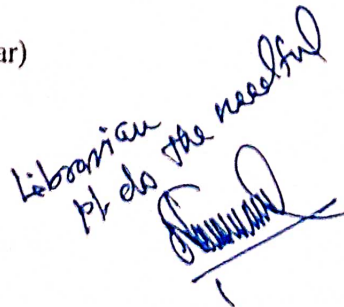 ar)
Librarian
pl do the needful